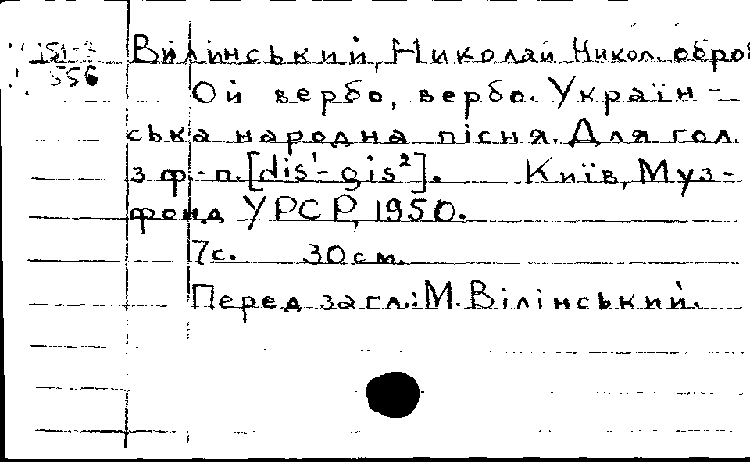 151-3
556
Вилінський, Николай Никол. обро
Ой вербо, вербо. Україн-
ська народна пісня. Для гол.
з ф.-п. [dis¹-gis²]. Київ, Муз-
фонд УРСР, 1950.
7с. 30см.
Перед загл.: М. Вілінський.